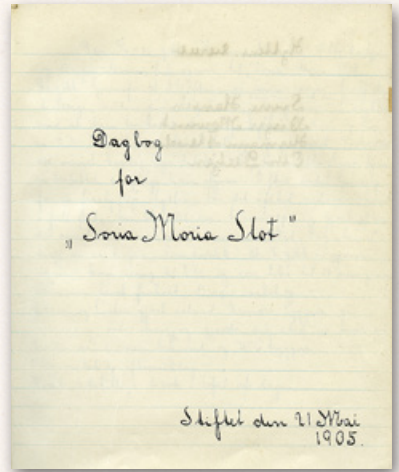 Dagbog
for
„Soria Moria Slot"
Stiftet den 21 Mai
1905.